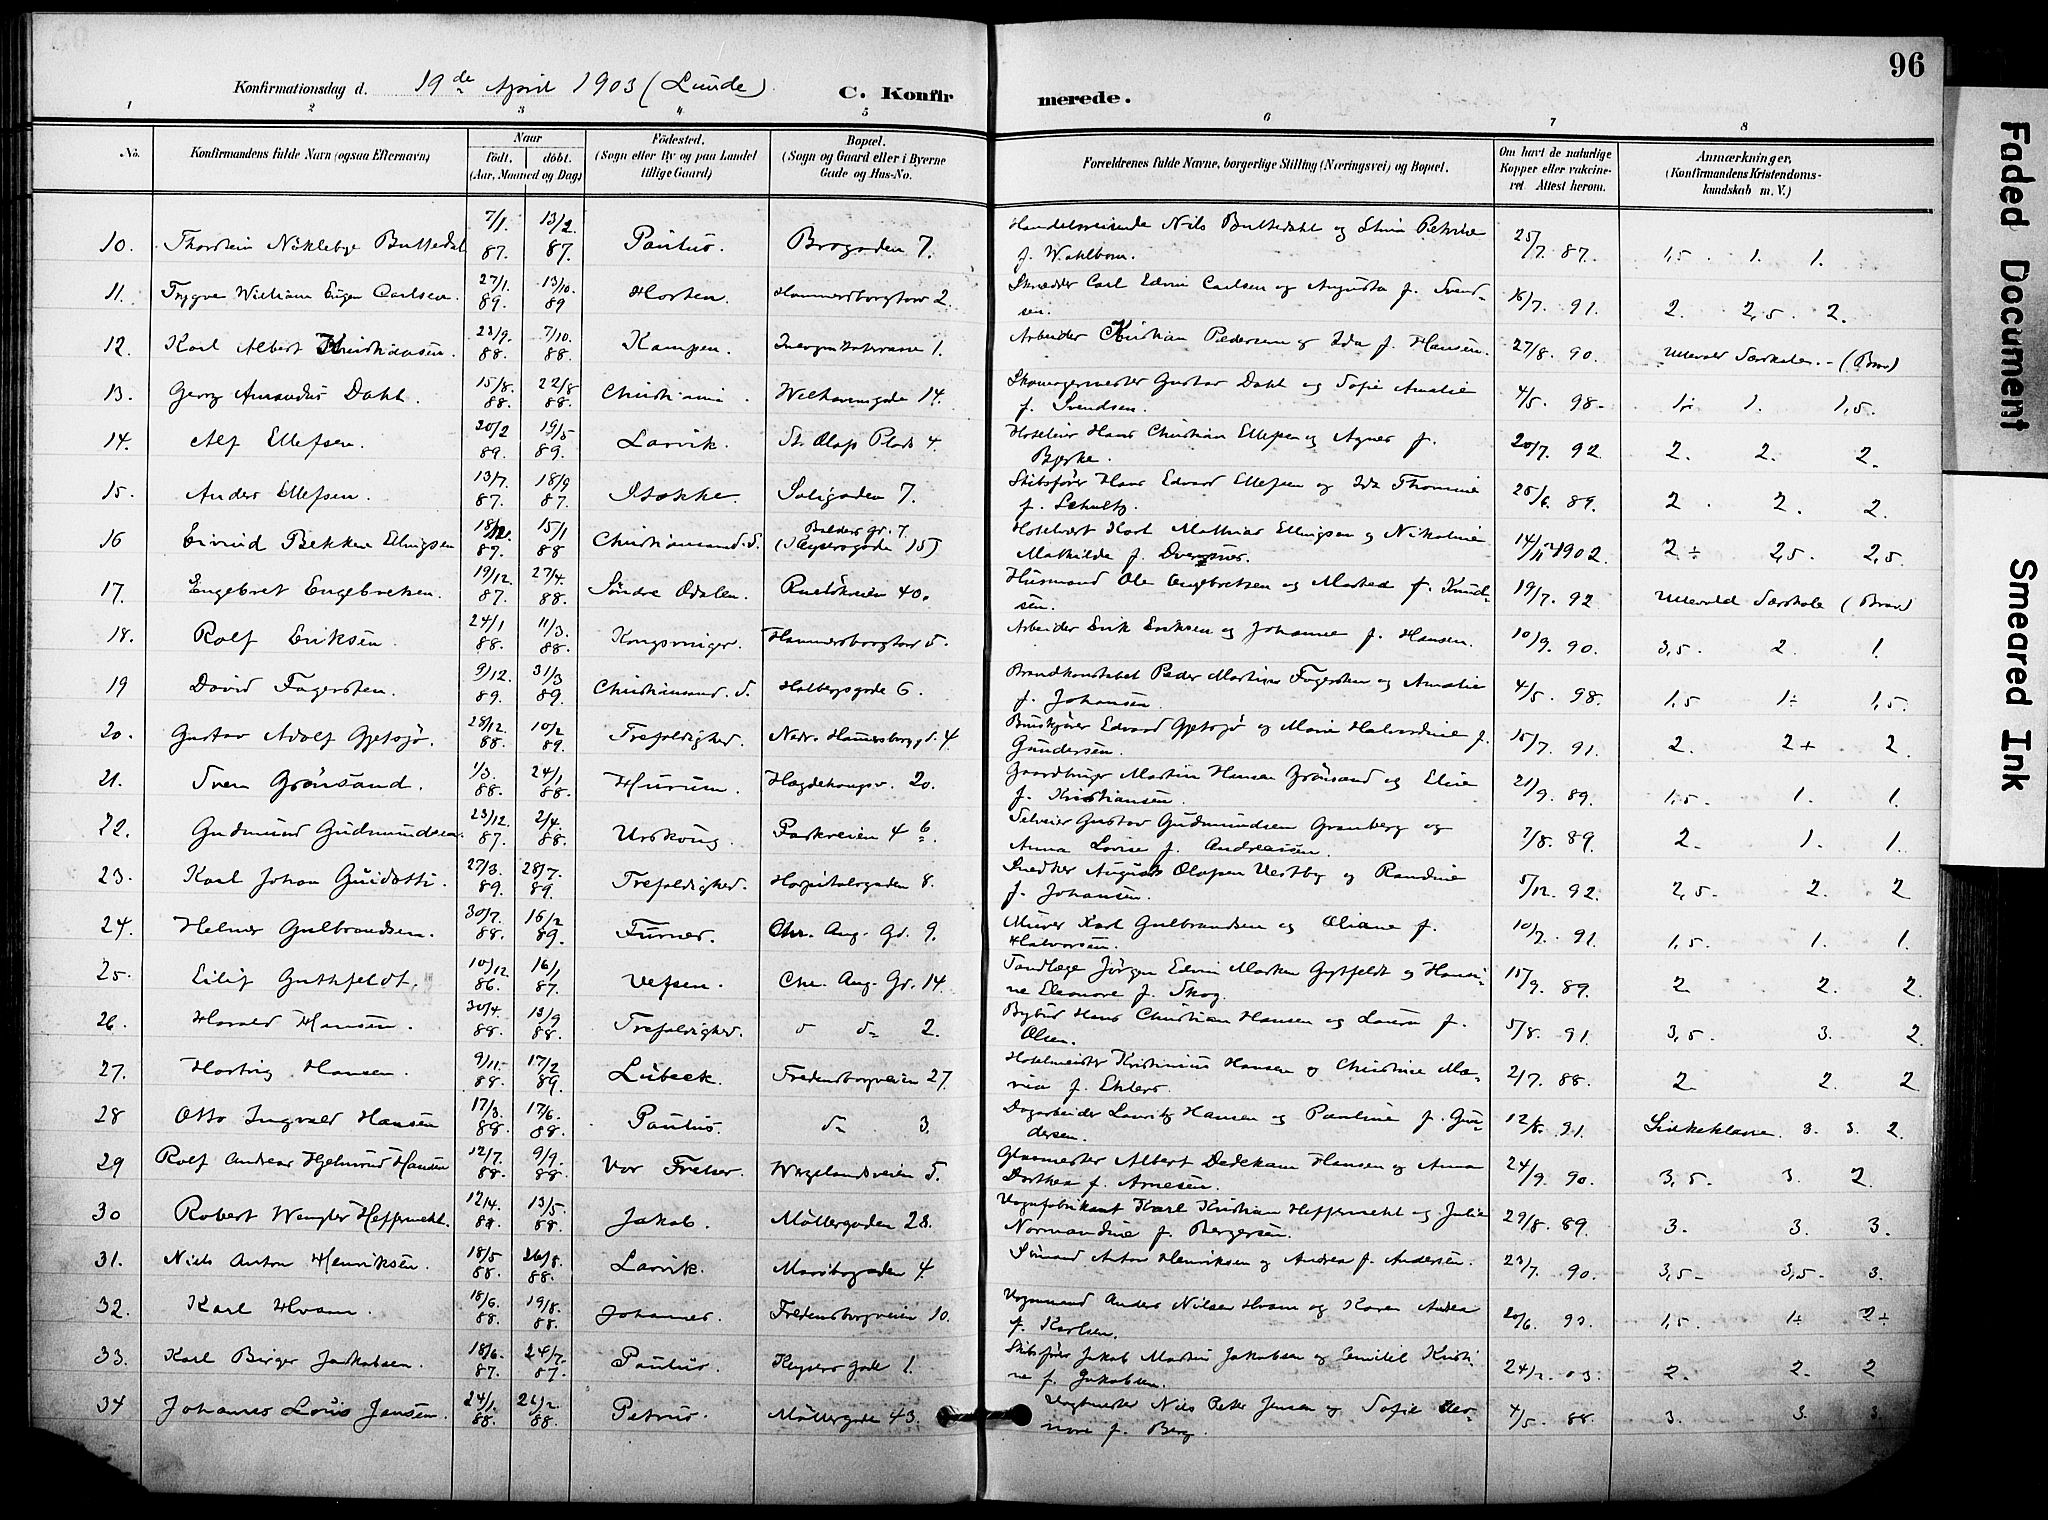 96
Konfirmationsdag d. 19de April 1903 (Lunde)
C. Konfirmerede.
1 2 3 4 5 6 7 8
No.
Konfirmandens fulde Navn (ogsaa Efternavn)
Naar
født. døbt.
(Aar, Maaned og Dag)
Fødested.
(Sogn eller By og paa Landet
tillige Gaard)
Bopæl.
(Sogn og Gaard eller i Byerne
Gade og Hus-No.
Forældrenes fulde Navne, borgerlige Stilling (Næringsvei) og Bopæl.
Om havt de naturlige
Kopper eller vakcine-
ret. Attest herom.
Anmærkninger,
(Konfirmandens Kristendoms-
kundskab m. V.)
10. Thorstein Nøkleby Buttedal 7/1. 87. 13/2 87. Paulus. Brogaden 7. Handelsreisende Nils Buttedahl og Stina Petrine f. Wahlbom. 25/7. 87. 1,5. 1. 1.
11. Trygve William Eugen Carlsen. 27/1. 89. 13/10. 89 Horten. Hammersborgtorv 2. Skrædder Carl Edvin Carlsen og Augusta f. Svendsen. 16/7. 91. 2. 2,5. 2.
12. Karl Albert Kristiansen. 23/9. 88. 7/10. 88. Kampen. 1. Arbeider Kristian Pedersen og Ida f. Hansen. 27/8. 90. Ullevold Særskole. - (Brav)
13. Georg Amandus Dahl. 15/8. 88. 22/8 88. Christiania. Welhavensgade 14. Skomagermester Gustav Dahl og Sofie Amalie f. Svendsen. 4/5. 98. 1÷ 1. 1,5.
14. Alf Ellefsen. 20/2 89. 19/5 89. Larvik. St. Olafs Plads 4. Hans Christian Ellefsen og Agnes f. Bjerke. 20/7. 92. 2. 2. 2.
15. Anders Ellefsen. 13/7. 87. 18/9 87. Stokke. Soligaden 7. Skibsfører Hans Edvard Ellefsen og Ida Thomine f. Schultz. 25/6. 89. 2. 2. 2.
16 Eivind Bekken Ellingsen 18/12. 87. 15/1 88 Christianssand. S. Balders gd. 7. (Keysersgade 15) Hotelvært Karl Mathias Ellingsen og Nikoline Mathilde f. Dvergsnes. 14/11 1902. 2÷ 2,5. 2,5.
17. Engebret Engebretsen. 19/12. 87. 27/4. 88. Søndre Odalen. Ruseløkveien 40. Husmand Ole Engebretsen og Marthea f. Knudsen. 19/7. 92 Ullevold Særskole (Brav)
18. Rolf Eriksen. 24/1 88. 11/3. 88. Kongsvinger. Hammersborgtorv 5. Arbeider Erik Eriksen og Johanne f. Hansen. 10/9. 90. 3,5. 2. 1.
19 David Fagersten. 9/12. 89. 31/3 89. Christianssand. S. Holbergsgade 6. Brandkonstabel Peder Martinus Fagersten og Amalie f. Johansen. 4/5. 98. 1,5 1÷ 1,5.
20. Gustav Adolf Gjetsjø. 28/12. 88. 10/2 89. Trefoldighed. Nedr. Hammersborg gd. 4. Edvard Gjetsjø og Marie Halvordine f. Gundersen. 15/7. 91. 2. 2+ 2.
21. Sven Grønsand. 1/3. 88. 24/1 88. Hurum. Hægdehougsv. 20. Gaardbruger Martin Hansen Grønsand og Eline f. Kristiansen. 21/9. 89. 1,5. 1. 1.
22. Gudmund Gudmundsen. 23/12. 87. 2/4. 88. Urskoug. Parkveien 4 b. Gustav Gudmundsen Granberg og Anna Lovise f. Andreassen. 7/8. 89. 2. 1. 1.
23. Karl Johan Guidotti. 27/3. 89. 28/7. 89. Trefoldighed. Hospitalsgaden 8. Snedker August Olafsen Vestby og Randine f. Johansen. 5/12. 92. 2,5. 2. 2
24. Helmer Gulbrandsen. 30/7. 88. 16/2 89. Furnes. Chr. Aug. Gd. 9. Murer Karl Gulbrandsen og Oliane f. Halvorsen. 10/7. 91. 1,5. 1. 1.
25. Eilif Guthfeldt. 10/12 86. 16/1 87. Vefsen. Chr. Aug. Gd. 14. Tandlæge Jørgen Edvin Marken Gytfeldt og Hansine Eleonore f. Skog. 15/9. 89. 2. 2. 2.
26. Harald Hansen. 30/4. 88. 13/9 88. Trefoldighed. do do 2. Bybud Hans Christian Hansen og Laura f. Olsen. 5/8. 91. 3,5. 3. 2
27. Hartvig Hansen. 9/11. 88. 17/2 89. Lübeck. Fredensborgveien 27. Hotelmeister Kristinius Hansen og Christine Maria f. Ehlers. 2/7. 88. 2. 2. 2
28 Otto Ingvald Hansen 17/3. 88. 17/6. 88. Paulus. do 3. Dagarbeider Lauritz Hansen og Pauline f. Gundersen. 12/8. 91. Sinkeklasse. 3. 3. 2.
29 Rolf Andreas Hjelmrud Hansen 12/7. 88. 9/9. 88. Vor Frelser. Wergelandsveien 5. Glasmester Albert Dedekam Hansen og Anna Dorthea f. Arnesen. 24/9. 90. 3,5. 3. 2.
30 Robert Wengler Heffermehl. 12/4. 88. 13/5 88. Jakob. Møllergaden 28. Vognfabrikant Karl Kristian Heffermehl og Julie Normandine f. Bergersen. 29/8. 89. 3. 3. 3.
31. Niels Anton Henriksen. 18/5 88. 26/8. 88. Larvik. Maribogaden 4. Sømand Anton Henriksen og Andrea f. Andersen. 23/7. 90. 3,5. 3,5. 3.
32. Karl Hvam. 18/6. 88. 19/8. 88. Johannes. Fredensborgveien 10. Vognmand Anders Nilsen Hvam og Karen Andrea f. Karlsen. 20/6. 90. 1,5. 1÷ 2÷
33. Karl Birger Jackobsen. 18/6. 87. 24/7. 87. Paulus. Keysers Gade 1. Skibsfører Jakob Martin Jakobsen og Emilie Kristine f. Jakobsen. 24/2. 03. 2. 2. 2
34 Johannes Louis Jensen. 24/1. 88. 26/2. 88. Petrus. Møllergade 43. Vagtmester Nils Peter Jensen og Sofie Eleonore f. Berg. 4/5. 88. 3. 3. 3
Faded Document
Smeared Ink